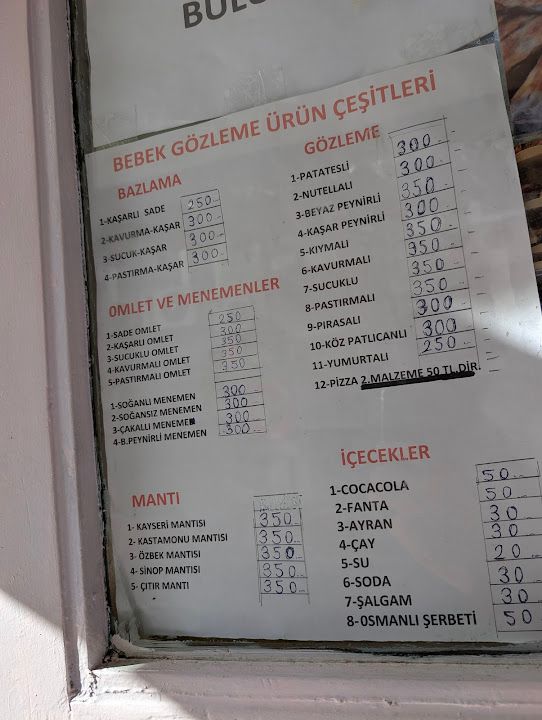 BEBEK GÖZLEME ÜRÜN ÇEŞİTLERİ
BAZLAMA
1-KAŞARLI SADE 250
2-KAVURMA-KAŞAR 300
3-SUCUK-KAŞAR 300
4-PASTIRMA-KAŞAR 300
OMLET VE MENEMENLER
1-SADE OMLET 250
2-KAŞARLI OMLET 300
3-SUCUKLU OMLET 350
4-KAVURMALI OMLET 350
5-PASTIRMALI OMLET 350
1-SOĞANLI MENEMEN 300
2-SOĞANSIZ MENEMEN 300
3-ÇAKALLI MENEMEN 300
4-B.PEYNİRLİ MENEMEN 300
MANTI
1- KAYSERİ MANTISI 350
2- KASTAMONU MANTISI 350
3- ÖZBEK MANTISI 350
4- SİNOP MANTISI 350
5- ÇITIR MANTI 350
GÖZLEME
1-PATATESLİ 300
2-NUTELLALI 300
3-BEYAZ PEYNİRLİ 350
4-KAŞAR PEYNİRLİ 300
5-KIYMALI 350
6-KAVURMALI 350
7-SUCUKLU 350
8-PASTIRMALI 350
9-PIRASALI 300
10-KÖZ PATLICANLI 300
11-YUMURTALI 250
12-PİZZA 2.MALZEME 50 TL.DİR.
İÇECEKLER
1-COCACOLA 50
2-FANTA 50
3-AYRAN 30
4-ÇAY 30
5-SU 20
6-SODA 30
7-ŞALGAM 30
8-OSMANLI ŞERBETİ 50